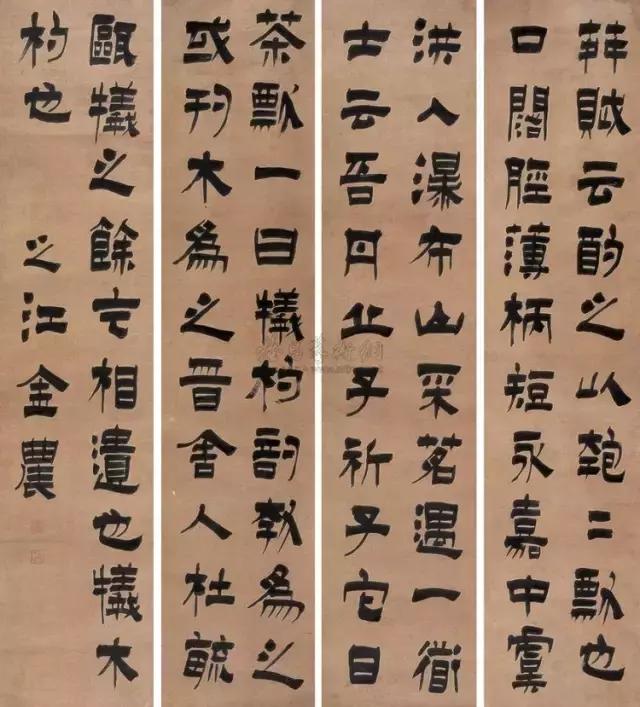 荈賦云酌之以匏匕瓢也
口闊脛薄柄短永嘉中虞
洪入瀑布山采茗遇一道
士云吾丹丘子祈子它日
茶瓢一曰犧杓剖瓠為之
或刊木為之晉舍人杜毓
甌犧之餘乞相遺也犧木
杓也 之江金農